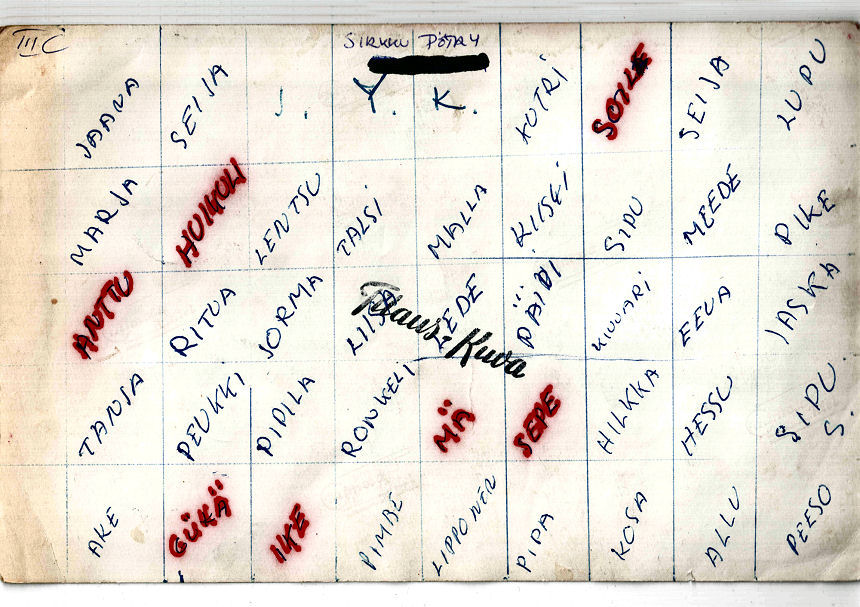 III C
SIRKKU PÖTRY
JAANA SEIJA J. Y. K. KUTRI SEIJA LUPU
MARJA HUIKULI LENTSU TALSI MALLA KIISKI SIPU MEEDE PIKE
ANTTU RITVA JORMA LIISA EEDE PÄIVI KIUVARI EEVA JASKA
Titaus Kuva
TANJA PEUKKI PIPILA RONKELI MÄ SEPE HILKKA HESSU SIPU S.
AKE GÜKÄ IKE PIMBE LIPPONEN PIPA KOSA ALLU PEESO